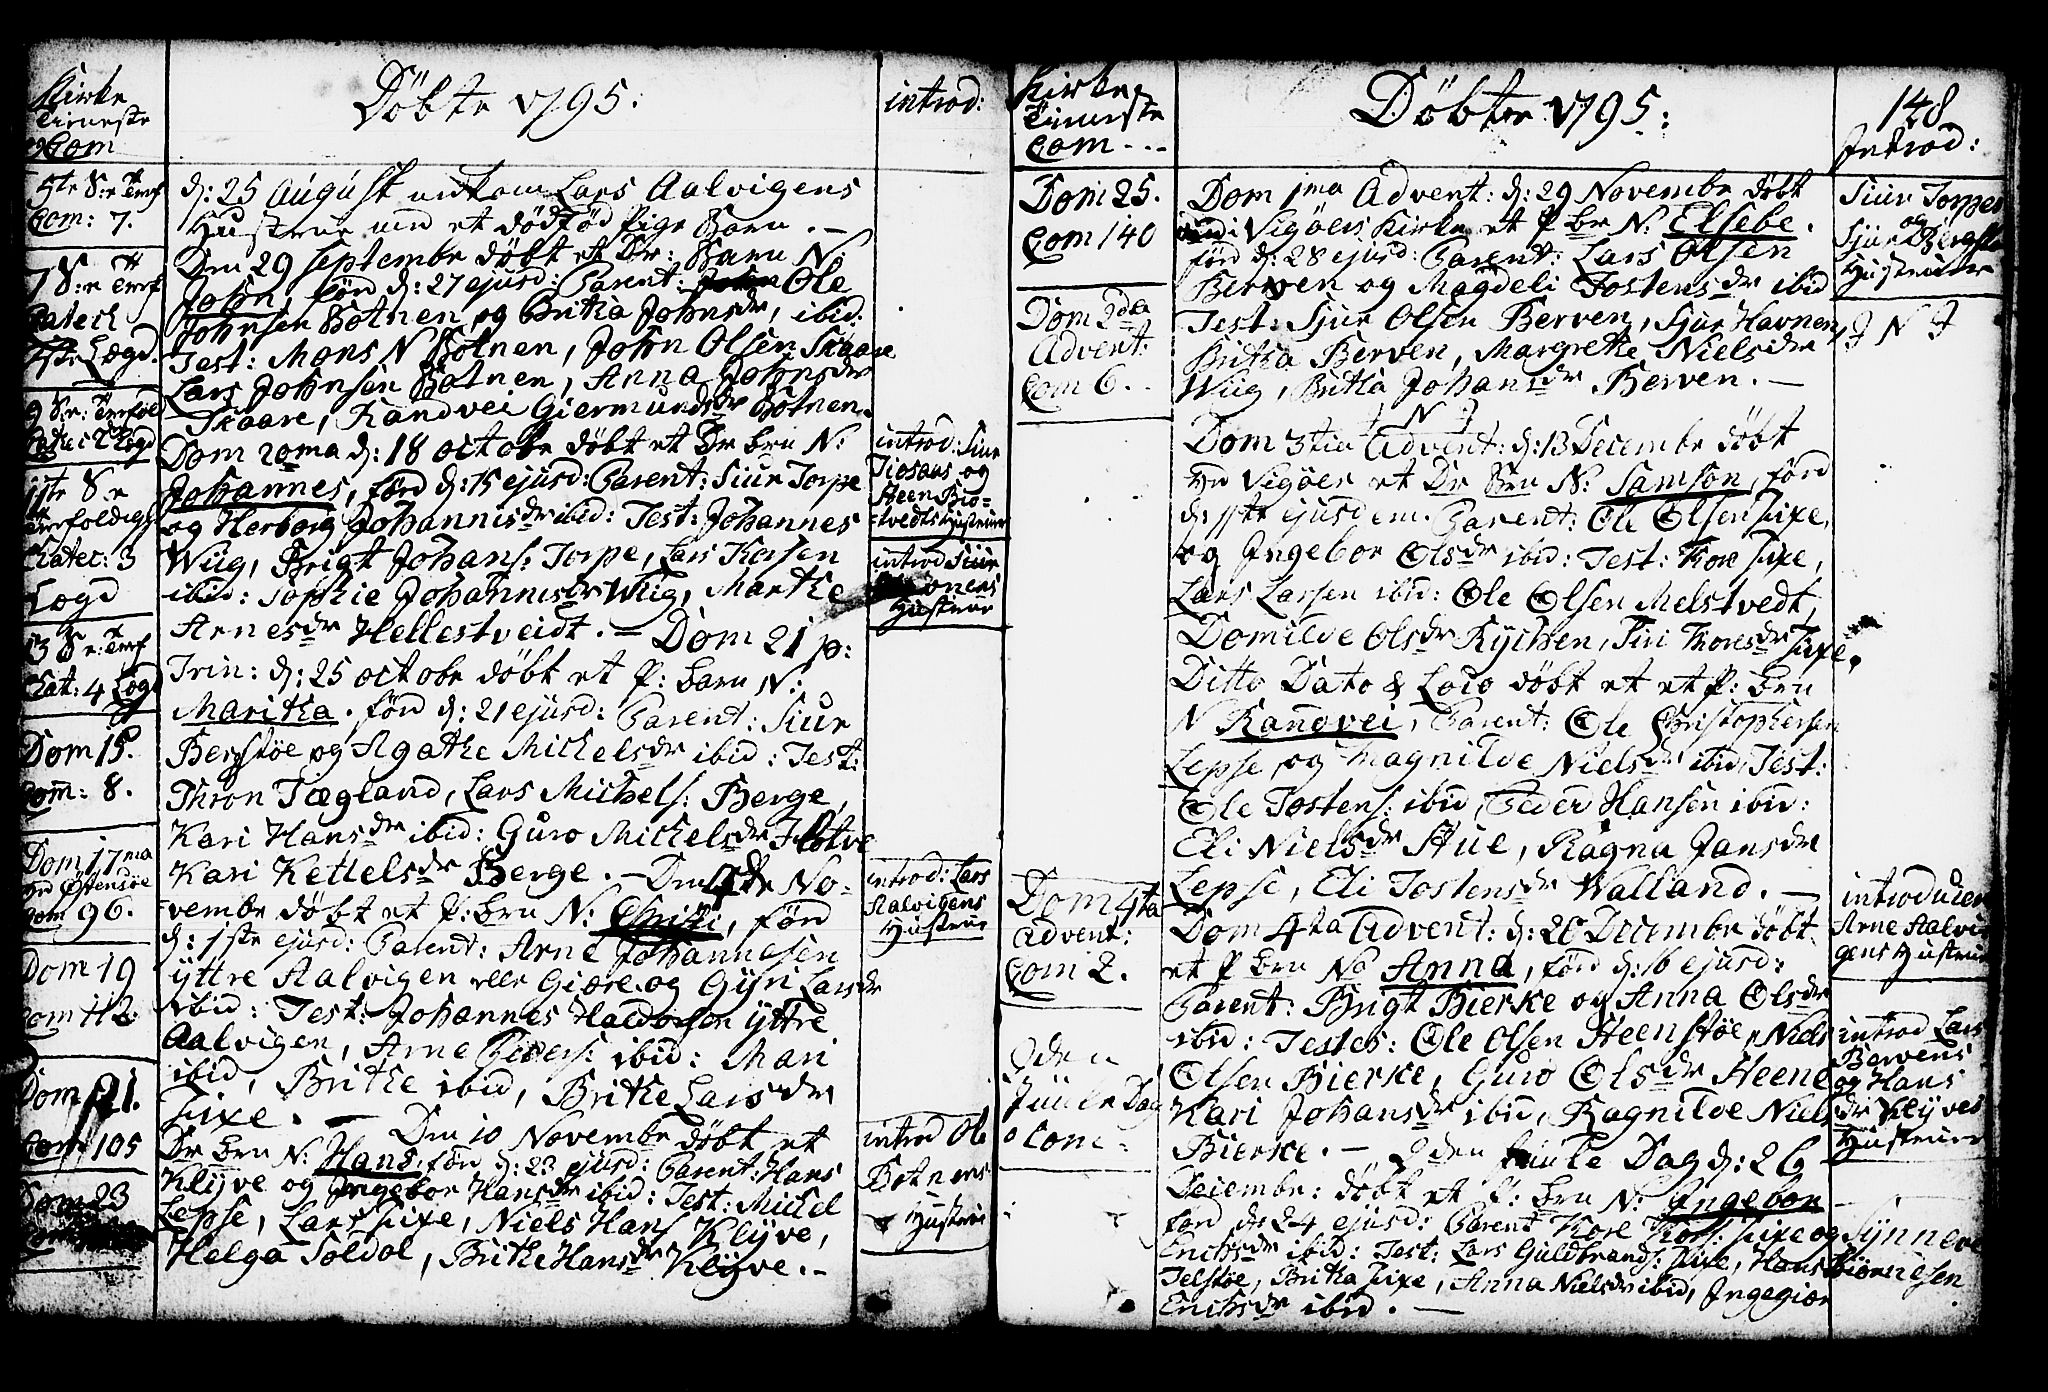 Kirke
Tieneste
Com
Döbte 1795.
introd:
5te S: e Tref
Com: 7.
7 S: e Tref
Catech
Lægd.
9 S: e: Trefol
Catech Lægd
11te S: e
Trefoldigh
Catec: 3
Lægd
13 S: e: Tref
Cat: 4 Lægd
Dom 15.
Com: 8.
Dom 17ma
Östensöe
Com 96.
Dom 19
Com 112.
Dom 21.
Com 105
Dom 23
d: 25 August nedkom Lars Aalvigens
Hustrue med et dödföd Pige Barn. –
Den 29 Septembr döbt et Dr: Barn N:
John, förd d: 27 ejusd: Parent: Ole
Johnsen Botnen og Britha Johnsdr, ibid.
Test: Mons N Botnen, John Olsen Skaare
Lars Johnsen Botnen, Anna Johnsdr
Skaare, Randvei Giermundsdr Botnen.
Dom 20ma d: 18 octobr döbt et Dr brn N:
Johannes, förd d: 15 ejusd: Parent: Siur Torpe
og Herborg Johannisdr ibid: Test: Johannes
Wiig, Brigt Johans: Torpe, Lars Korsen
ibid: Sophie Johannisdr Wiig, Marthe
Arnesdr Hellestveidt. – Dom 21 p:
Trin: d: 25 octobr döbt et P: barn N:
Maritha. förd d: 21 ejusd: Parent: Siur
Berstöe og Agathe Michelsdr ibid: Test:
Thron Tægland, Lars Michels: Berge,
Kari Hansdr ibid: Guro Michelsdr
Kari Kettelsdr Berge. – Den No-
vembr döbt et P: brn N: , förd
d: 1ste ejusd: Parent: Arne Johannesen
yttre Aalvigen elle Giære og Gyri Larsdr
ibid: Test: Johannes Haldorsen yttre
Aalvigen, Arne Peders: ibid: Mari
ibid, Brithe ibid, Brithe Larsdr
Fixe. – Den 10 Novembr döbt et
Dr brn N: Hans, förd d: 23 ejusd: Parent: Hans
Klyve og Ingebor Hansdr ibid: Test: Michel
Lepse, Lars Fixe, Niels Hans Klyve,
Helga Soldal, Brithe Hansdr Klyve. –
introd: Siur
Tiosaas og
Steen Bio-
tvedts Hustruer
introd Siur
Hustrue
introd: Lars
Aalvigens
Hustrue
introd Ole
Botnens
Hustrue
Kirke
Tieneste
Com
Döbte 1795:
148
Introd:
Dom 25.
Com 140
Dom 2da
Advent:
Com 6.
Dom 4ta
Advent:
Com 2.
2den
Juule Dag
Com:
Dom 1ma Advent: d: 29 Novembr döbt
Vigöers Kirke et P brn N: Elsebe.
förd d: 28 ejusd: Parent: Lars Olsen
Berven og Magdeli Tostensdr ibid
Test: Sjur Olsen Berven, Sjur Havnen,
Britha Berven, Margrethe Nielsdr
Wiig, Britha Johansdr Berven. –
J N J
Dom 3tia Advent: d: 13 Decembr döbt
Vigöer et Dr Brn N: Samson, förd
d: 11te ejusdem. Parent: Ole Olsen Fixe,
og Ingebor Olsdr ibid: Test: Thore Fixe,
Lars Larsen ibid: Ole Olsen Melstvedt,
Domilde Olsdr Rykken, Siri Thoresdr Fixe.
Ditto Dato & Loco döbt et et P: brn
N Randvei, Parent: Ole Christophersen
Lepse, og Magnilde Nielsdr ibid, Test:
Ole Tostens: ibid, Peder Hansen ibid:
Eli Nielsdr Hue, Ragna Jansdr
Lepse, Eli Tostensdr Walland. –
Dom 4ta Advent: d: 20 Decembr döbt
et P brn No Anna, förd d: 16 ejusd:
Parent: Brigt Bierke og Anna Olsdr
ibid: Testes: Ole Olsen Steenstöe, Niels
Olsen Bierke, Guro Olsdr Steene
Kari Johansdr ibid, Ragnilde Niels
Bierke. – 2den Juule Dag d: 26
Decembr: döbt et P: brn N: Ingebor
förd d: 24 ejusd: Parent Thore Thors: Fixe og Synneve
Erichsdr ibid: Test: Lars Guldbrands: Fixe, Hans Biörnesen
Telstöe, Britha Fixe, Anna Nielsdr ibid, Ingegiær
Erichsdr ibid. –
Siur Torpes
og
Sjur Bergstö
Hustruer
J N J
introducer
Arne Aalvi-
gens Hustrue
introd Lars
Bervens
og Hans
Klyves
Hustruer